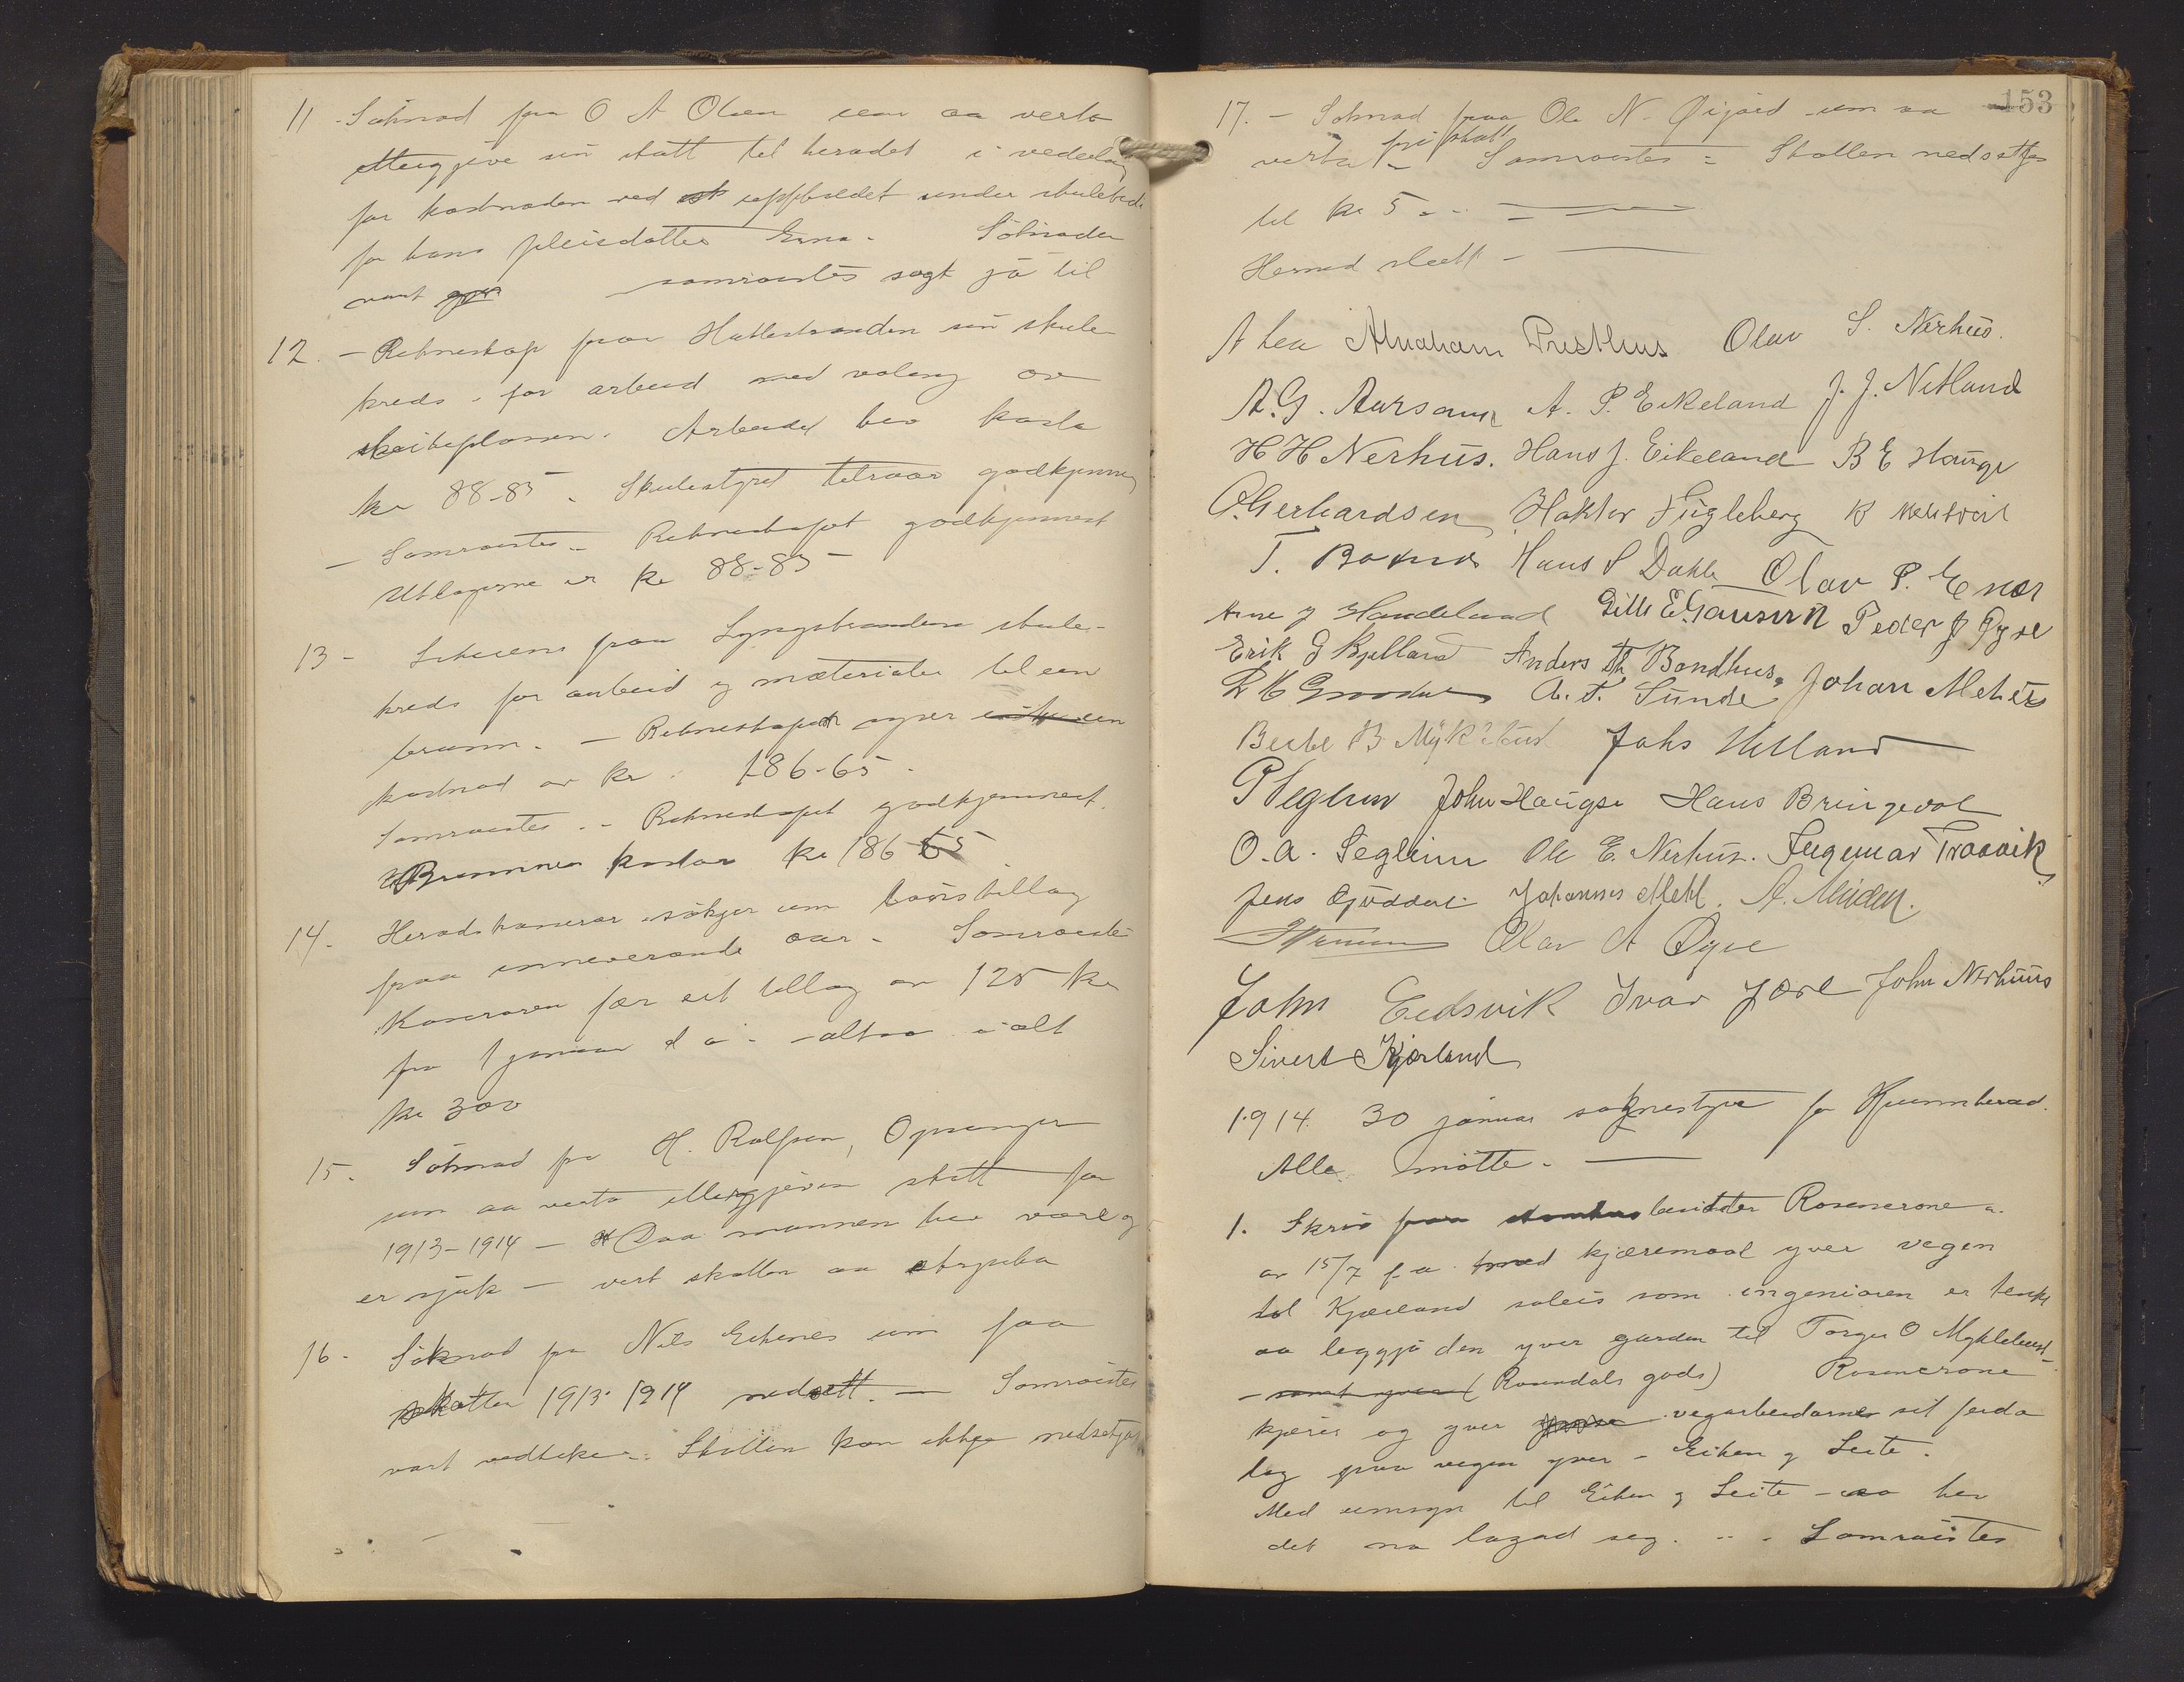 11 - Söknad fra O A Olsen um aa verta
ettergjeve sin skatt til heradet i vederlag
for kostnaden ved uppholdet under skuletid
for hans pleiedatter Erna. Söknaden
vart samröistes sagt ja til
12. - Rekneskap fraa Hattestranden sin skule
kreds - for arbeid med valing av
skoiteplassen. Arbeidet hev kosta
kr 88-85. Skulestyret tilraar godkjenning
- Samröistes - Rekneskapet godkjennest
Utlogorne er kr 88-85
13 - fraa Lyngstrandens skule-
kreds for arbeid og materialer til ein
brunn. - Rekneskapet syner
kostnad av kr. 186-65.
Samröistes - Rekneskapet godkjennest.
Brunnen kostar kr 186-65
14. Heradskaserar søkjer um lönstillag
fraa inneverande aar - Samröistes
Kaseraren fær eit tillag av 125 kr
fra 1 januar d a. - altso i alt
kr 300
15. Söknad fra H. Rolfsen, Opsanger
um aa verta ettergjeven skatt for
1913-1914 - Daa mannen hev vore og
er sjuk - vert skatten aa stryka
16. Söknad fra Nils Echnes um faa
skatten 1913-1914 nedsett. - Samröistes
vart vedteke: Skatten kan ikkje nedsetjas
153
17. - Söknad fraa Ole N. Øigård um aa
verta fri skatt - Samröistes = Skatten nedsettes
til kr 5 -
Hermed slutt -
A Lea Abraham Presthus Olav S. Nerhus.
A. G. Aarsand A. P. Eikeland J. J. Netland
H H Nerhus. Hans J. Eikeland B E Hauge
O. Gerhardsen Haktor Fugleberg K
T. Hans S Dahle Olav P. Enes
Arne J Handeland Gitle E. Gausvik Peder J Øyre
Erik G Kjelland Anders Th. Bondhus. Johan Mehus
A. T. Sunde
B. Myklebust Johs Helland
P Seglem John Hauge Hans Bringedal
O. A. Seglem Ole E. Nerhus. Ingemar Traavik
Jens Gjuddal Johannes Mehl. A. Minden.
Olav A Øyre
John Eidsvik Ivar Jære John Nerhuus
Sivert Kjærland
1914. 30 januar soknestyre for Kvinnherad.
Alle mötte.
1. Skriv besidder Rosencrone
av 15/7 f. a. med kjæremaal yver vegen
til Kjærland soleis som ingeniören er tenkt
aa leggja den yver garden til Torger O Myklebust
- (Rosendals gods) Rosencrone
kjærer og yver vegarbeidarnes sit ferda
lag paa vegen yver - Eiken og Leite.
Med umsyn til Eiken og Leite - so hev
det no lagad seg. - Samröistes